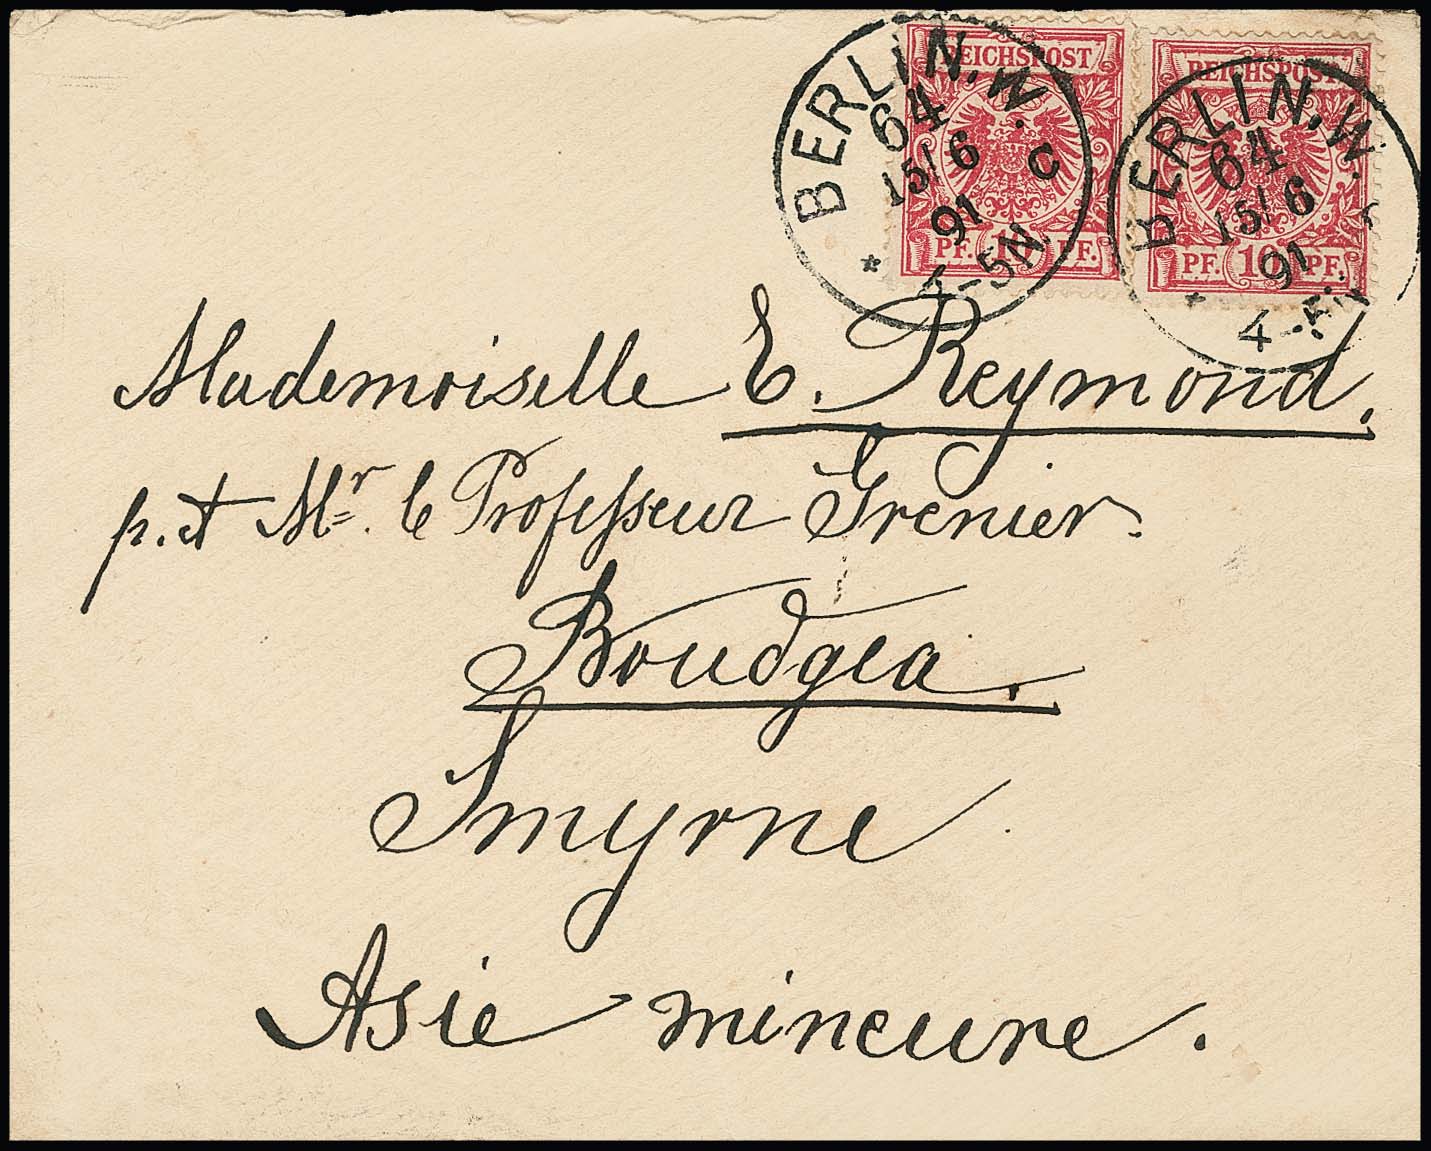 REICHSPOST REICHSPOST
PF. 10 PF. PF. 10 PF.
BERLIN, W.
64
15/6 C
91
* 4-5N
BERLIN, W.
64
15/6
91
* 4-5N
Mademoiselle E. Reymond.
p. ad Mr. le Professeur Grenier.
Boudgea.
Smyrne
Asie mineure.